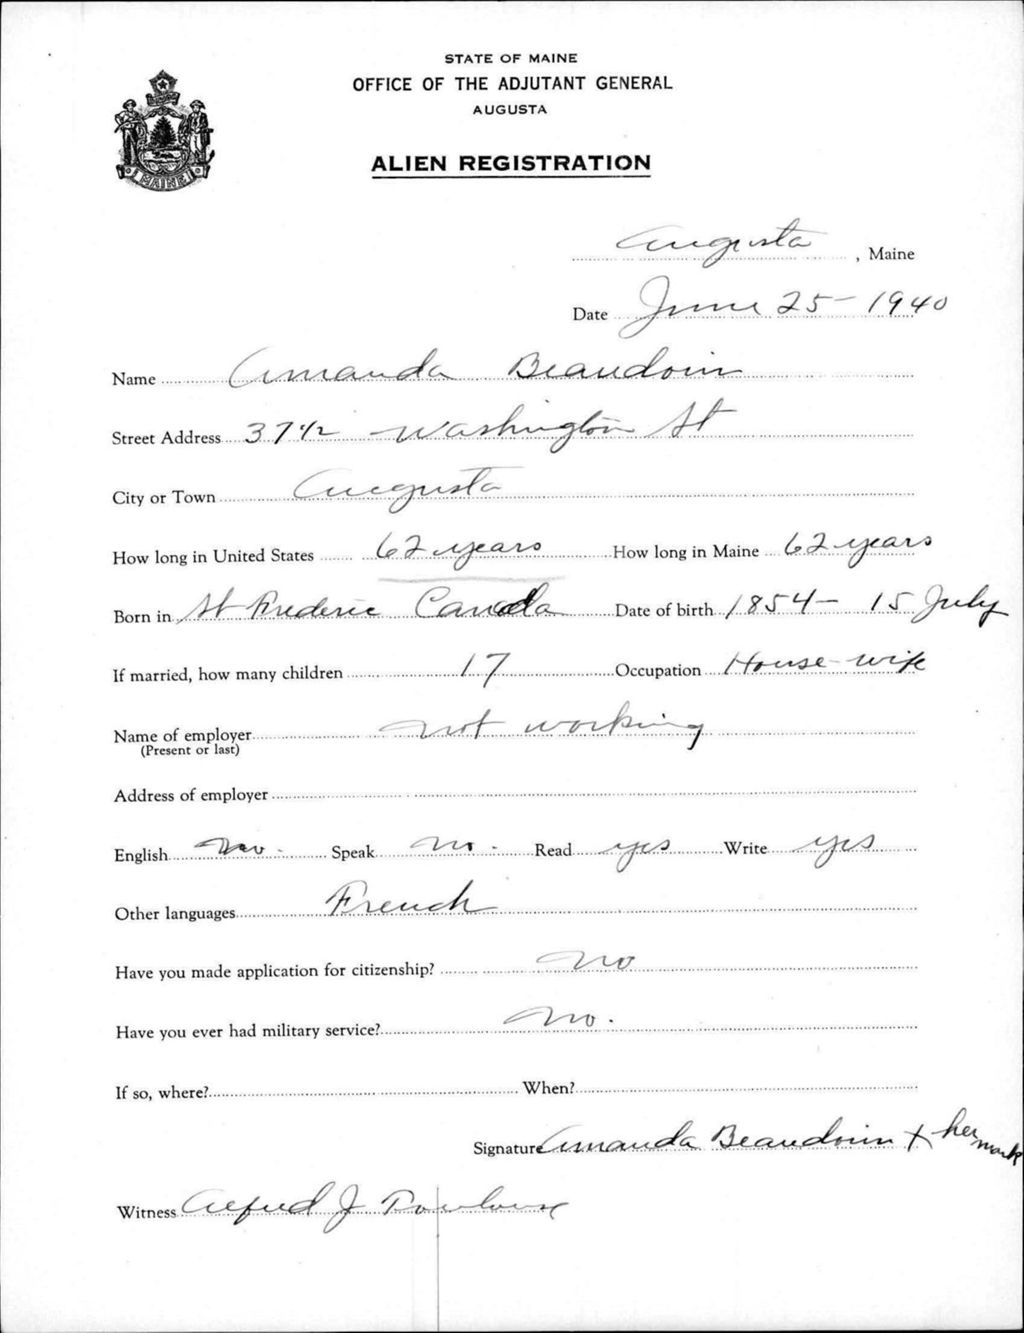 STATE OF MAINE
OFFICE OF THE ADJUTANT GENERAL
AUGUSTA
ALIEN REGISTRATION
MAINE
Augusta, Maine
Date June 25 - 1940
Name Amanda Beaudoin
Street Address 37 1/2 Washington St
City or Town Augusta
How long in United States 62 years How long in Maine 62 years
Born in St Frederic Canada Date of birth 1854 - 15 July
If married, how many children 17 Occupation House-wife
Name of employer not working
(Present or last)
Address of employer
English no. Speak no. Read yes Write yes
Other languages French
Have you made application for citizenship? no
Have you ever had military service? no.
If so, where? When?
Signature Amanda Beaudoin X her mark
Witness Alfred J